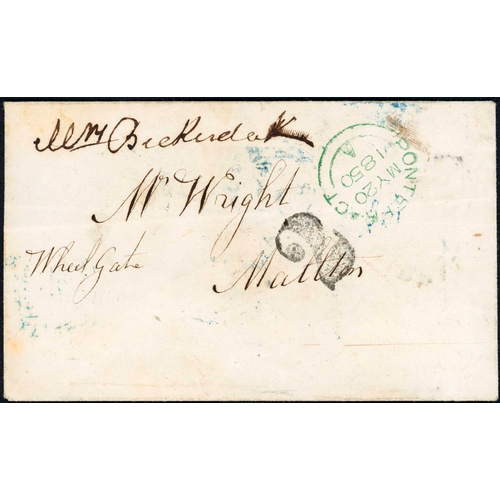 Mrs Bickerdek
PONTEFRACT
A
MY 20
1850
Mr Wright
2
Wheel Gate
Malton